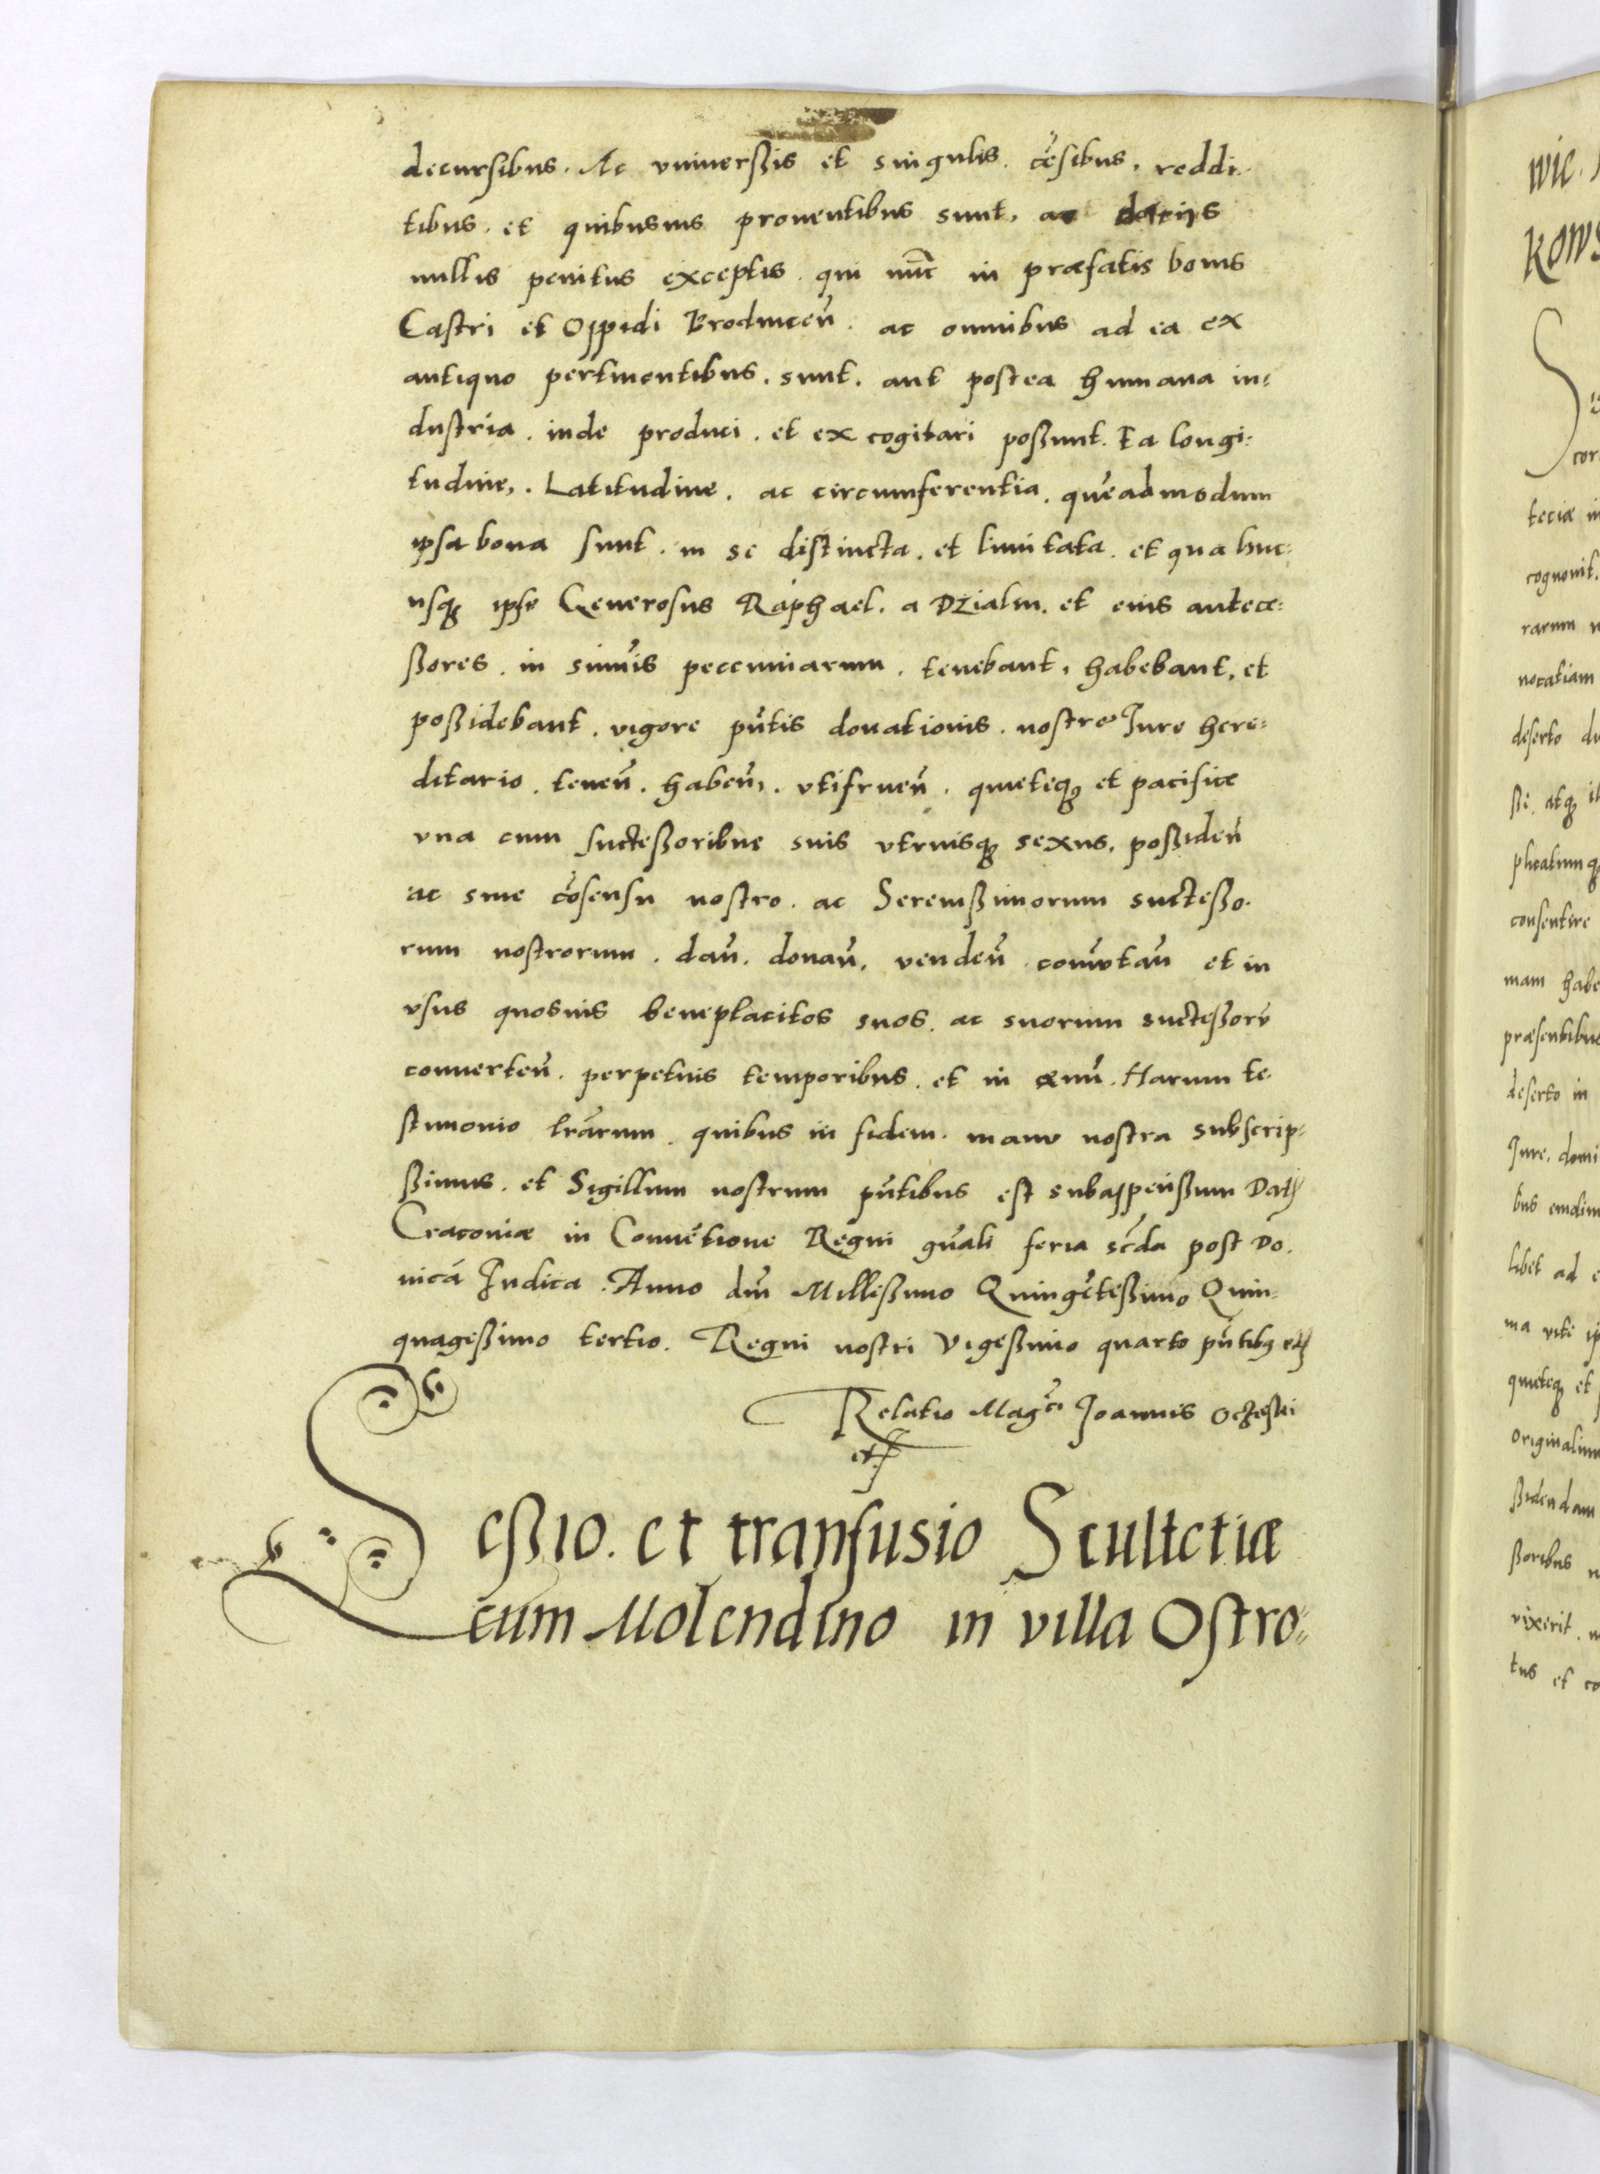 decursibus. Ac vniuerßis et singulis. cẽsibus. reddi-
tibus. et quibusuis prouentibus sunt, ac dacijs
nullis penitus exceptis. qui nũc in præfatis bonis
Castri et Oppidi Brodnicen̄. ac omnibus ad ea ex
antiquo pertinentibus. sunt. aut postea humana in-
dustria. inde produci. et ex cogitari poßunt. Ea longi-
tudine,. Latitudine. ac circumferentia. quẽadmodum
ipsa bona sunt. in se distincta. et limitata. et qua huc-
usqȝ ipse Generosus Raphael. a Dżialin. et eius antece-
ßores. in sum̄is peccuniarum. tenebant, habebant, et
poßidebant. vigore pñtis donationis. nostre Jure here-
ditario. tenen̄. haben̄. vtifruen̄. quieteqȝ et pacifice
vna cum succeßoribus suis vtriusqȝ sexus, poßiden̄
ac sine cõsensu nostro. ac Sereniss̈imorum succeßo-
rum nostrorum. dan̄. donan̄. venden̄. com̄utan̄ et in
vsus quosuis beneplacitos suos. ac suorum succeßorũ
conuerten̄. perpetuis temporibus. et in æuũ. Harum te-
stimonio lr̃arum. quibus in fidem. manu nostra subscrip-
ßimus. et Sigillum nostrum pñtibus est subappenßum Datȝ
Cracouiæ in Conuẽtione Regni gñali feria scđa post Do-
nicã Judica. Anno dñi Milleßimo Quingẽteßimo Quin-
quageßimo tertio. Regni nostri Vigeßimo quarto pñtibȝ etȝ
Relatio Mag^ci Joannis Oczeski
etȝ
Ceßio. et transfusio Scultetiæ
cum Molendino in villa Ostro-
wic.
kows
S
cor
teciæ in
cognouit.
rarum
uocatiam
deserto
ße. atqȝ
plicatumqȝ
consentire
mam habe
præsentibus
deserto in
Jure. domi
bus emdim
libet ad
ma viti ip
quieteqȝ et
originalium
ßidendam
ßoribus
vixerit.
tus et co